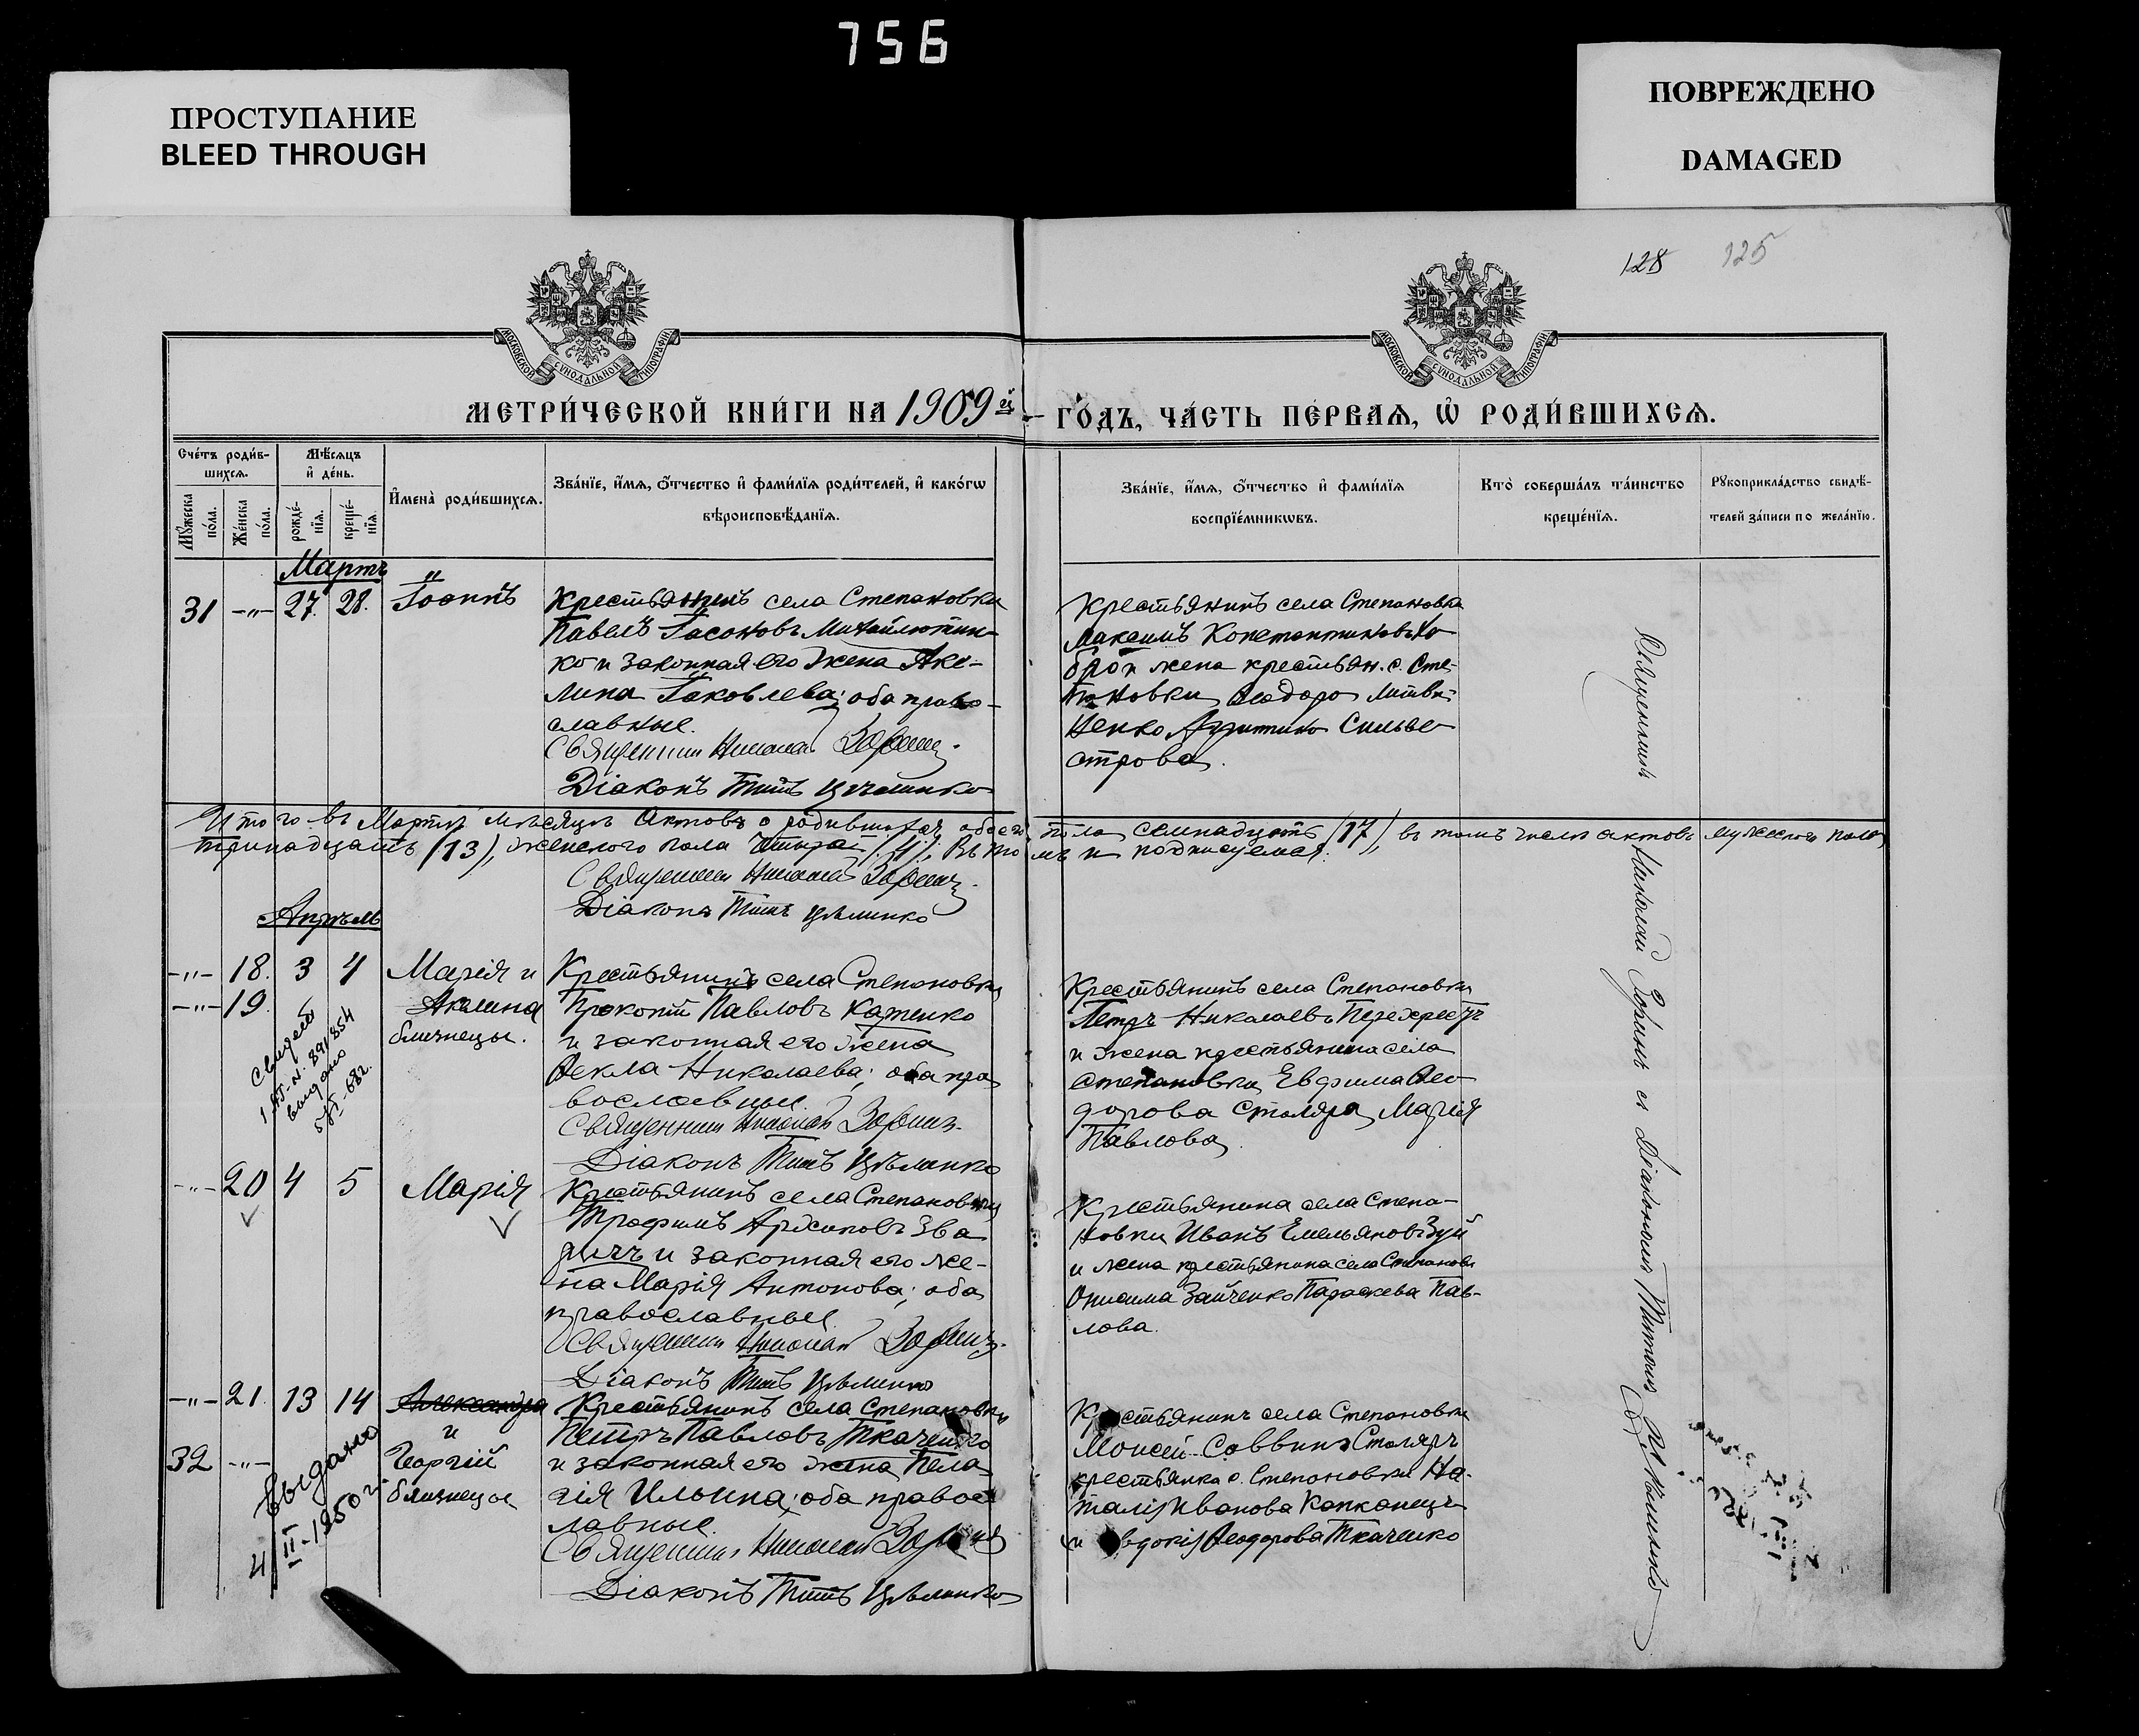 756
ПРОСТУПАНИЕ
BLEED THROUGH
ПОВРЕЖДЕНО
DAMAGED
128 125
МОСКОВСКОЙ СѴНОДАЛЬНОЙ ТИПОГРАФІИ
МОСКОВСКОЙ СѴНОДАЛЬНОЙ ТИПОГРАФІИ
МЕТРИ́ЧЕСКОЙ КНИ́ГИ НА 1909й ГО́ДЪ, ЧА́СТЬ ПЕ́РВАѦ, Ѡ҆ РОДИ́ВШИХСѦ.
Сче́тъ роди́в-
шихсѧ.
Мꙋ́жеска по́ла.
Же́нска по́ла.
Мѣ́сѧцъ
и҆ де́нь.
рожде́-
нїѧ.
креще́-
нїѧ.
И҆мена̀ роди́вшихсѧ.
Зва́нїе, и҆́мѧ, ѻ҆́тчество и҆ фами́лїѧ роди́телей, и҆ како́гѡ
вѣроисповѣ́данїѧ.
Зва́нїе, и҆́мѧ, ѻ҆́тчество и҆ фами́лїѧ
воспрїе́мникѡвъ.
Кто̀ соверша́лъ та́инство
креще́нїѧ.
Рꙋкоприкла́дство свидѣ́-
телей за́писи по жела́нїю.
Мартъ
31 -„- 27. 28. Іоаннъ
Крестьянинъ села Степановки
Павелъ Іасоновъ Михайлютин-
ко и законная его жена Аки-
лина Іаковлева; оба право-
славные.
Священникъ Николай Зоринъ.
Діаконъ Титъ Цѣлинко
Крестьянинъ села Степановки
Максимъ Константиновъ
и жена крестьян. с. Сте-
пановки Ѳеодора Литви-
ненко Сильве-
строва.
Итого въ Мартѣ мѣсяцѣ актовъ о родившихся обоего пола семнадцать (17), въ томъ числѣ актовъ мужескаго пола
тринадцать (13), женскаго пола четыре (4); въ томъ и подписуемся.
Священникъ Николай Зоринъ.
Діаконъ Титъ Цѣлинко
Апрѣль
-„- 18. 3 4 Марія и
-„- 19. Акилина
близнецы.
выдано
Крестьянинъ села Степановки
Прокопій Павловъ Каженко
и законная его жена
Ѳекла Николаева; оба пра
вославные.
Священникъ Николай Зоринъ.
Діаконъ Титъ Цѣлинко
Крестьянинъ села Степановки
Петръ Николаевъ Перехрестъ
и жена крестьянина села
Степановки Евфима Ѳео
дорова Столяра Марія
Павлова.
-„- 20 4 5 Марія
Крестьянинъ села Степановки
Трофимъ Звa
ричъ и законная его же-
на Марія Антонова; оба
православные.
Священникъ Николай Зоринъ.
Діаконъ Титъ Цѣлинко
Крестьянина села Степа-
новки Иванъ Емельяновъ Зуй
и жена крестьянина села Степановк
Онисима Зайченко Параскева Пав-
лова.
-„- 21. 13 14 Александра
и
32 -„- Георгій
близнецы
Выдано
4/II-1950 г.
Крестьянинъ села Степановки
Петръ Павловъ Ткаченко
и законная его жена Пела-
гія Ильина; оба правос
лавные.
Священникъ Николай Зоринъ
Діаконъ Титъ Цѣлинко
Крестьянинъ села Степановки
Моисей Саввинъ Столяръ
крестьянка с. Степановки На-
талія Иванова Капканецъ
и Евдокія Ѳеодорова Ткаченко
Священникъ Николай Зоринъ съ Діакономъ Титомъ Цѣлинко